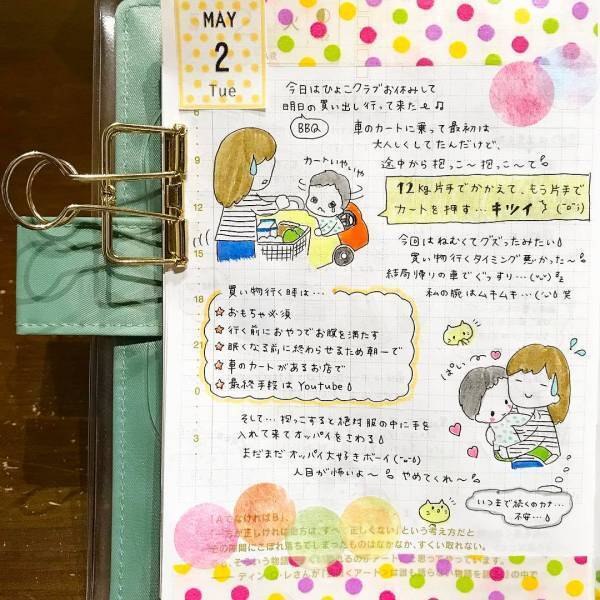 MAY
2
Tue
今日はひよこクラブお休みして
明日の買い出し行って来た♫
BBQ
車のカートに乗って最初は
大人しくしてたんだけど、
途中から抱っこ〜抱っこ〜て
カートいやぃや
12kg片手でかかえて、もう片手で
カートを押す…キツイ
今回はねむくてグズったみたい
買い物行くタイミング悪かった〜
結局帰りの車でぐっすり…
私の腕はムキムキ… 笑
買い物行く時は…
☆おもちゃ必須
☆行く前におやつでお腹を満たす
☆眠くなる前に終わらせるため朝一で
☆車のカートがあるお店で
☆最終手段はYoutube
ぱい
そして…抱っこすると絶対服の中に手を
入れて来てオッパイをさわる
まだまだオッパイ大好きボーイ
人目が怖いよ〜 やめてくれ〜
いつまで続くのカナ…
不安…
6
9
12
15
18
21
0
3
「AでなければB」、
という考え方だと
その隙間にこぼれ落ちてしまったものはなかなか、すくい取れない。